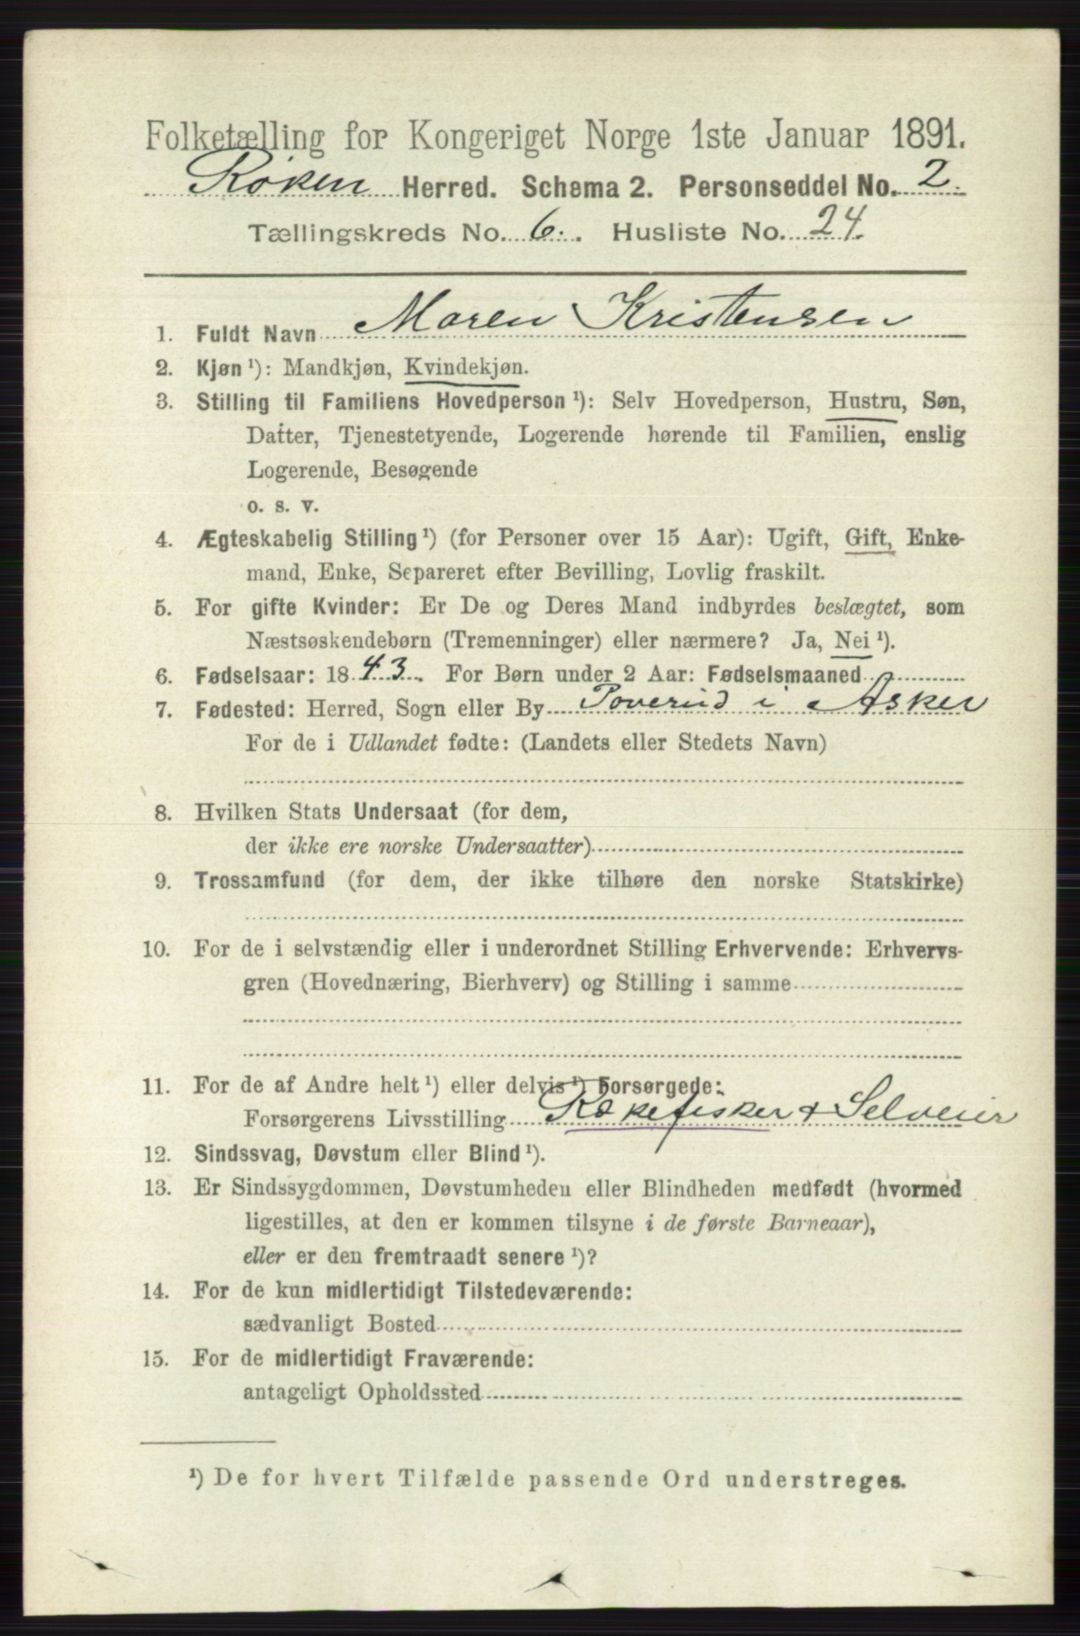 Folketælling for Kongeriget Norge 1ste Januar 1891.
Røken Herred. Schema 2. Personseddel No. 2.
Tællingskreds No. 6. Husliste No. 24.
1. Fuldt Navn Maren Kristensen
2. Kjøn ¹): Mandkjøn, Kvindekjøn.
3. Stilling til Familiens Hovedperson ¹): Selv Hovedperson, Hustru, Søn,
Datter, Tjenestetyende, Logerende hørende til Familien, enslig
Logerende, Besøgende
o. s. v.
4. Ægteskabelig Stilling ¹) (for Personer over 15 Aar): Ugift, Gift, Enke-
mand, Enke, Separeret efter Bevilling, Lovlig fraskilt.
5. For gifte Kvinder: Er De og Deres Mand indbyrdes beslægtet, som
Næstsøskendebørn (Tremenninger) eller nærmere? Ja, Nei ¹).
6. Fødselsaar: 1843. For Børn under 2 Aar: Fødselsmaaned
7. Fødested: Herred, Sogn eller By Poverud i Asker
For de i Udlandet fødte: (Landets eller Stedets Navn)
8. Hvilken Stats Undersaat (for dem,
der ikke ere norske Undersaatter)
9. Trossamfund (for dem, der ikke tilhøre den norske Statskirke)
10. For de i selvstændig eller i underordnet Stilling Erhvervende: Erhvervs-
gren (Hovednæring, Bierhverv) og Stilling i samme
11. For de af Andre helt ¹) eller delvis ¹) Forsørgede:
Forsørgerens Livsstilling Rækefisker + Selveier
12. Sindssvag, Døvstum eller Blind ¹).
13. Er Sindssygdommen, Døvstumheden eller Blindheden medfødt (hvormed
ligestilles, at den er kommen tilsyne i de første Barneaar),
eller er den fremtraadt senere ¹)?
14. For de kun midlertidigt Tilstedeværende:
sædvanligt Bosted
15. For de midlertidigt Fraværende:
antageligt Opholdssted
¹) De for hvert Tilfælde passende Ord understreges.